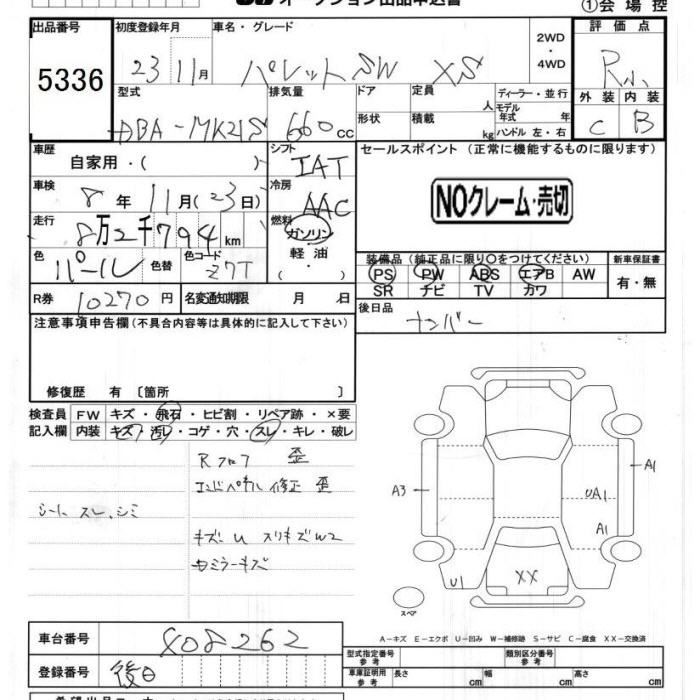 オークション出品申込書
①会場控
出品番号 初度登録年月 車名・グレード 2WD ・ 4WD 評価点
5336 23 11月 パレットSW XS R小
型式 排気量 ドア 定員 人 ディーラー・並行 モデル年式 年 外装 内装
DBA-MK21S 660cc 形状 積載 kg ハンドル 左・右 C B
車歴 シフト セールスポイント (正常に機能するものに限ります)
自家用・( ) IAT
車検 8年11月(23日) 冷房 AAC NOクレーム・売切
走行 8万2千794km 燃料 ガソリン
軽油
( ・ )
色 パール 色替 色コード Z7T
装備品 (純正品に限り○をつけてください) 新車保証書
PS PW ABS エアB AW 有・無
SR ナビ TV カワ
R券 10270円 名変通知期限 月 日 後日品
ナンバー
注意事項申告欄(不具合内容等は具体的に記入して下さい)
修復歴 有 〔箇所 〕
検査員 FW キズ・飛石・ヒビ割・リペア跡・×要
記入欄 内装 キズ・汚レ・コゲ・穴・スレ・キレ・破レ
Rフロア 歪
エンドパネル 修正 歪
シート スレ、シミ
キズ U スリキズW2
ミラーキズ
A1
A3
UA1
A1
U1
XX
スペア
A－キズ E－エクボ U－凹み W－補修跡 S－サビ C－腐食 XX－交換済
車台番号 408262
型式指定番号 参考 類別区分番号 参考
登録番号 後日
車庫証明用 参考 長さ cm 幅 cm 高さ cm